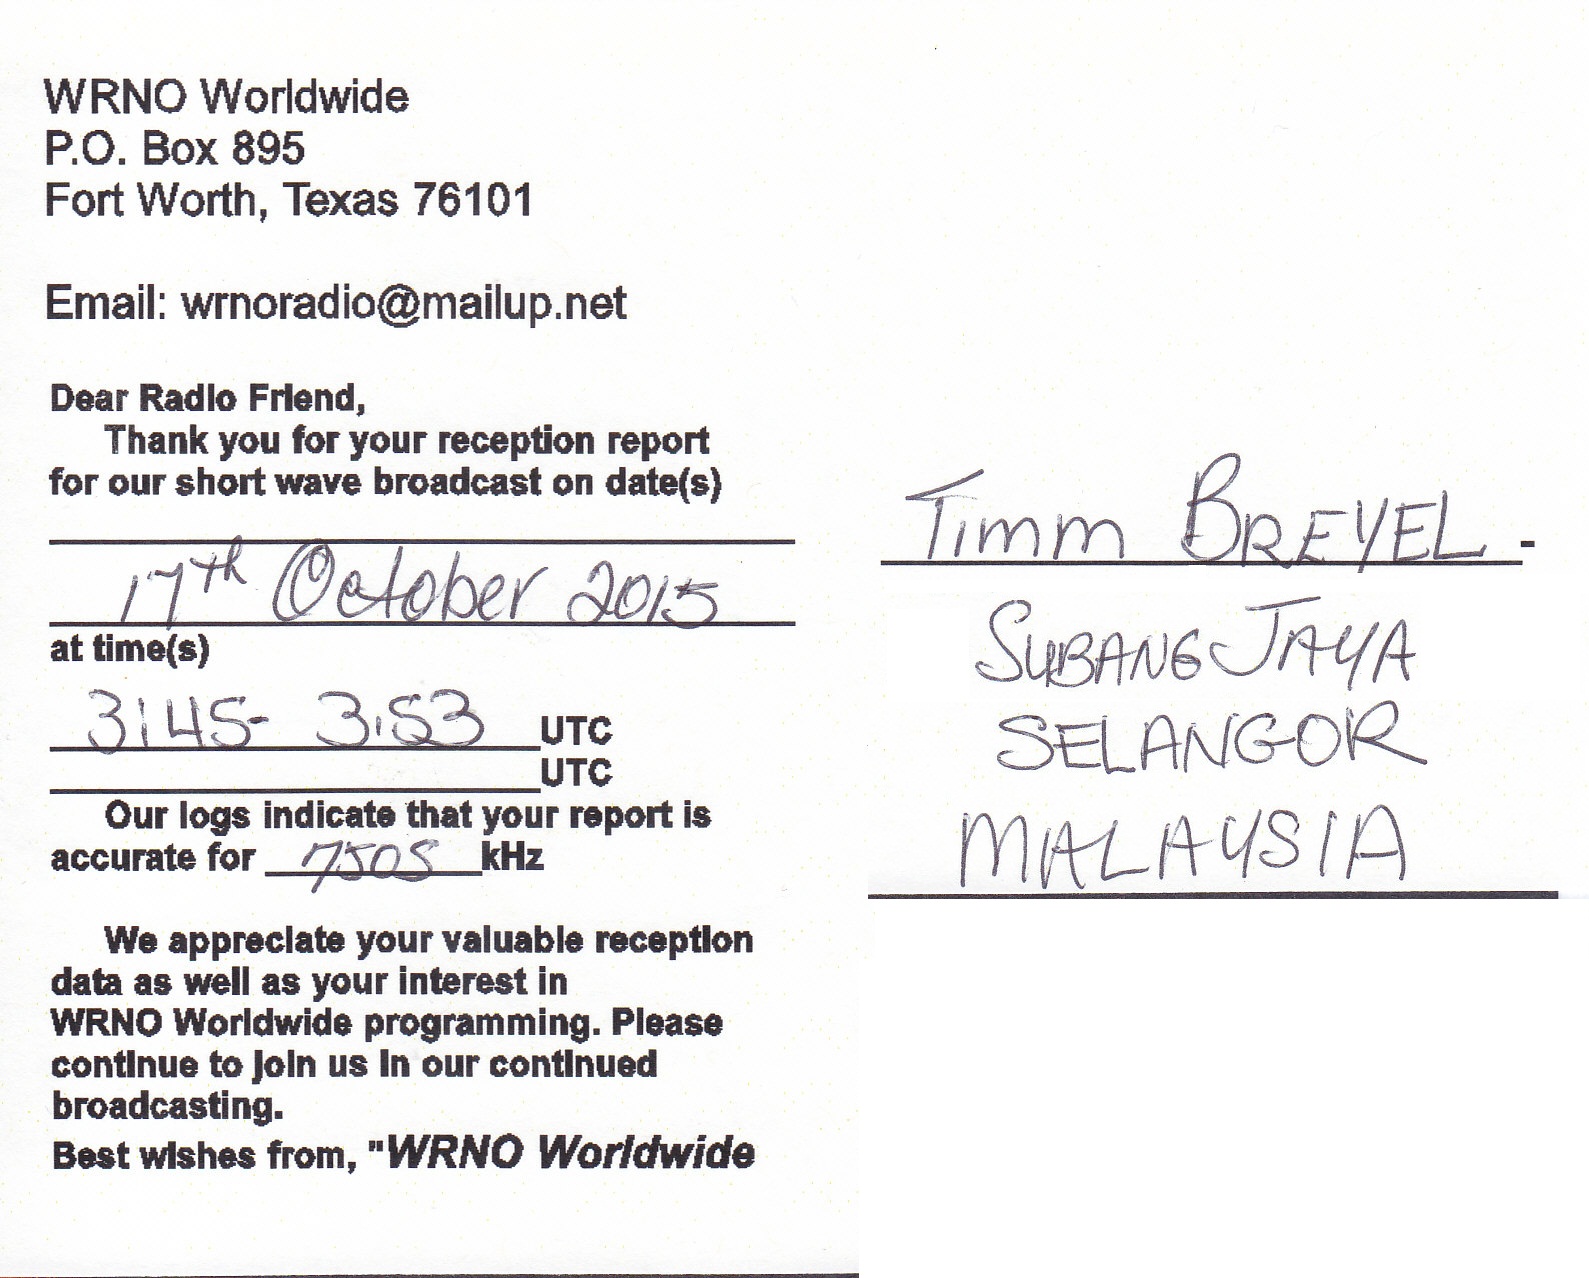 WRNO Worldwide
P.O. Box 895
Fort Worth, Texas 76101
Email: wrnoradio@mailup.net
Dear Radio Friend,
Thank you for your reception report
for our short wave broadcast on date(s)
17th October 2015
at time(s)
3:45- 3:53 UTC
UTC
Our logs indicate that your report is
accurate for 7505 kHz
We appreciate your valuable reception
data as well as your interest in
WRNO Worldwide programming. Please
continue to join us in our continued
broadcasting.
Best wishes from, "WRNO Worldwide
Timm BREYEL -
SUBANG JAYA
SELANGOR
MALAYSIA